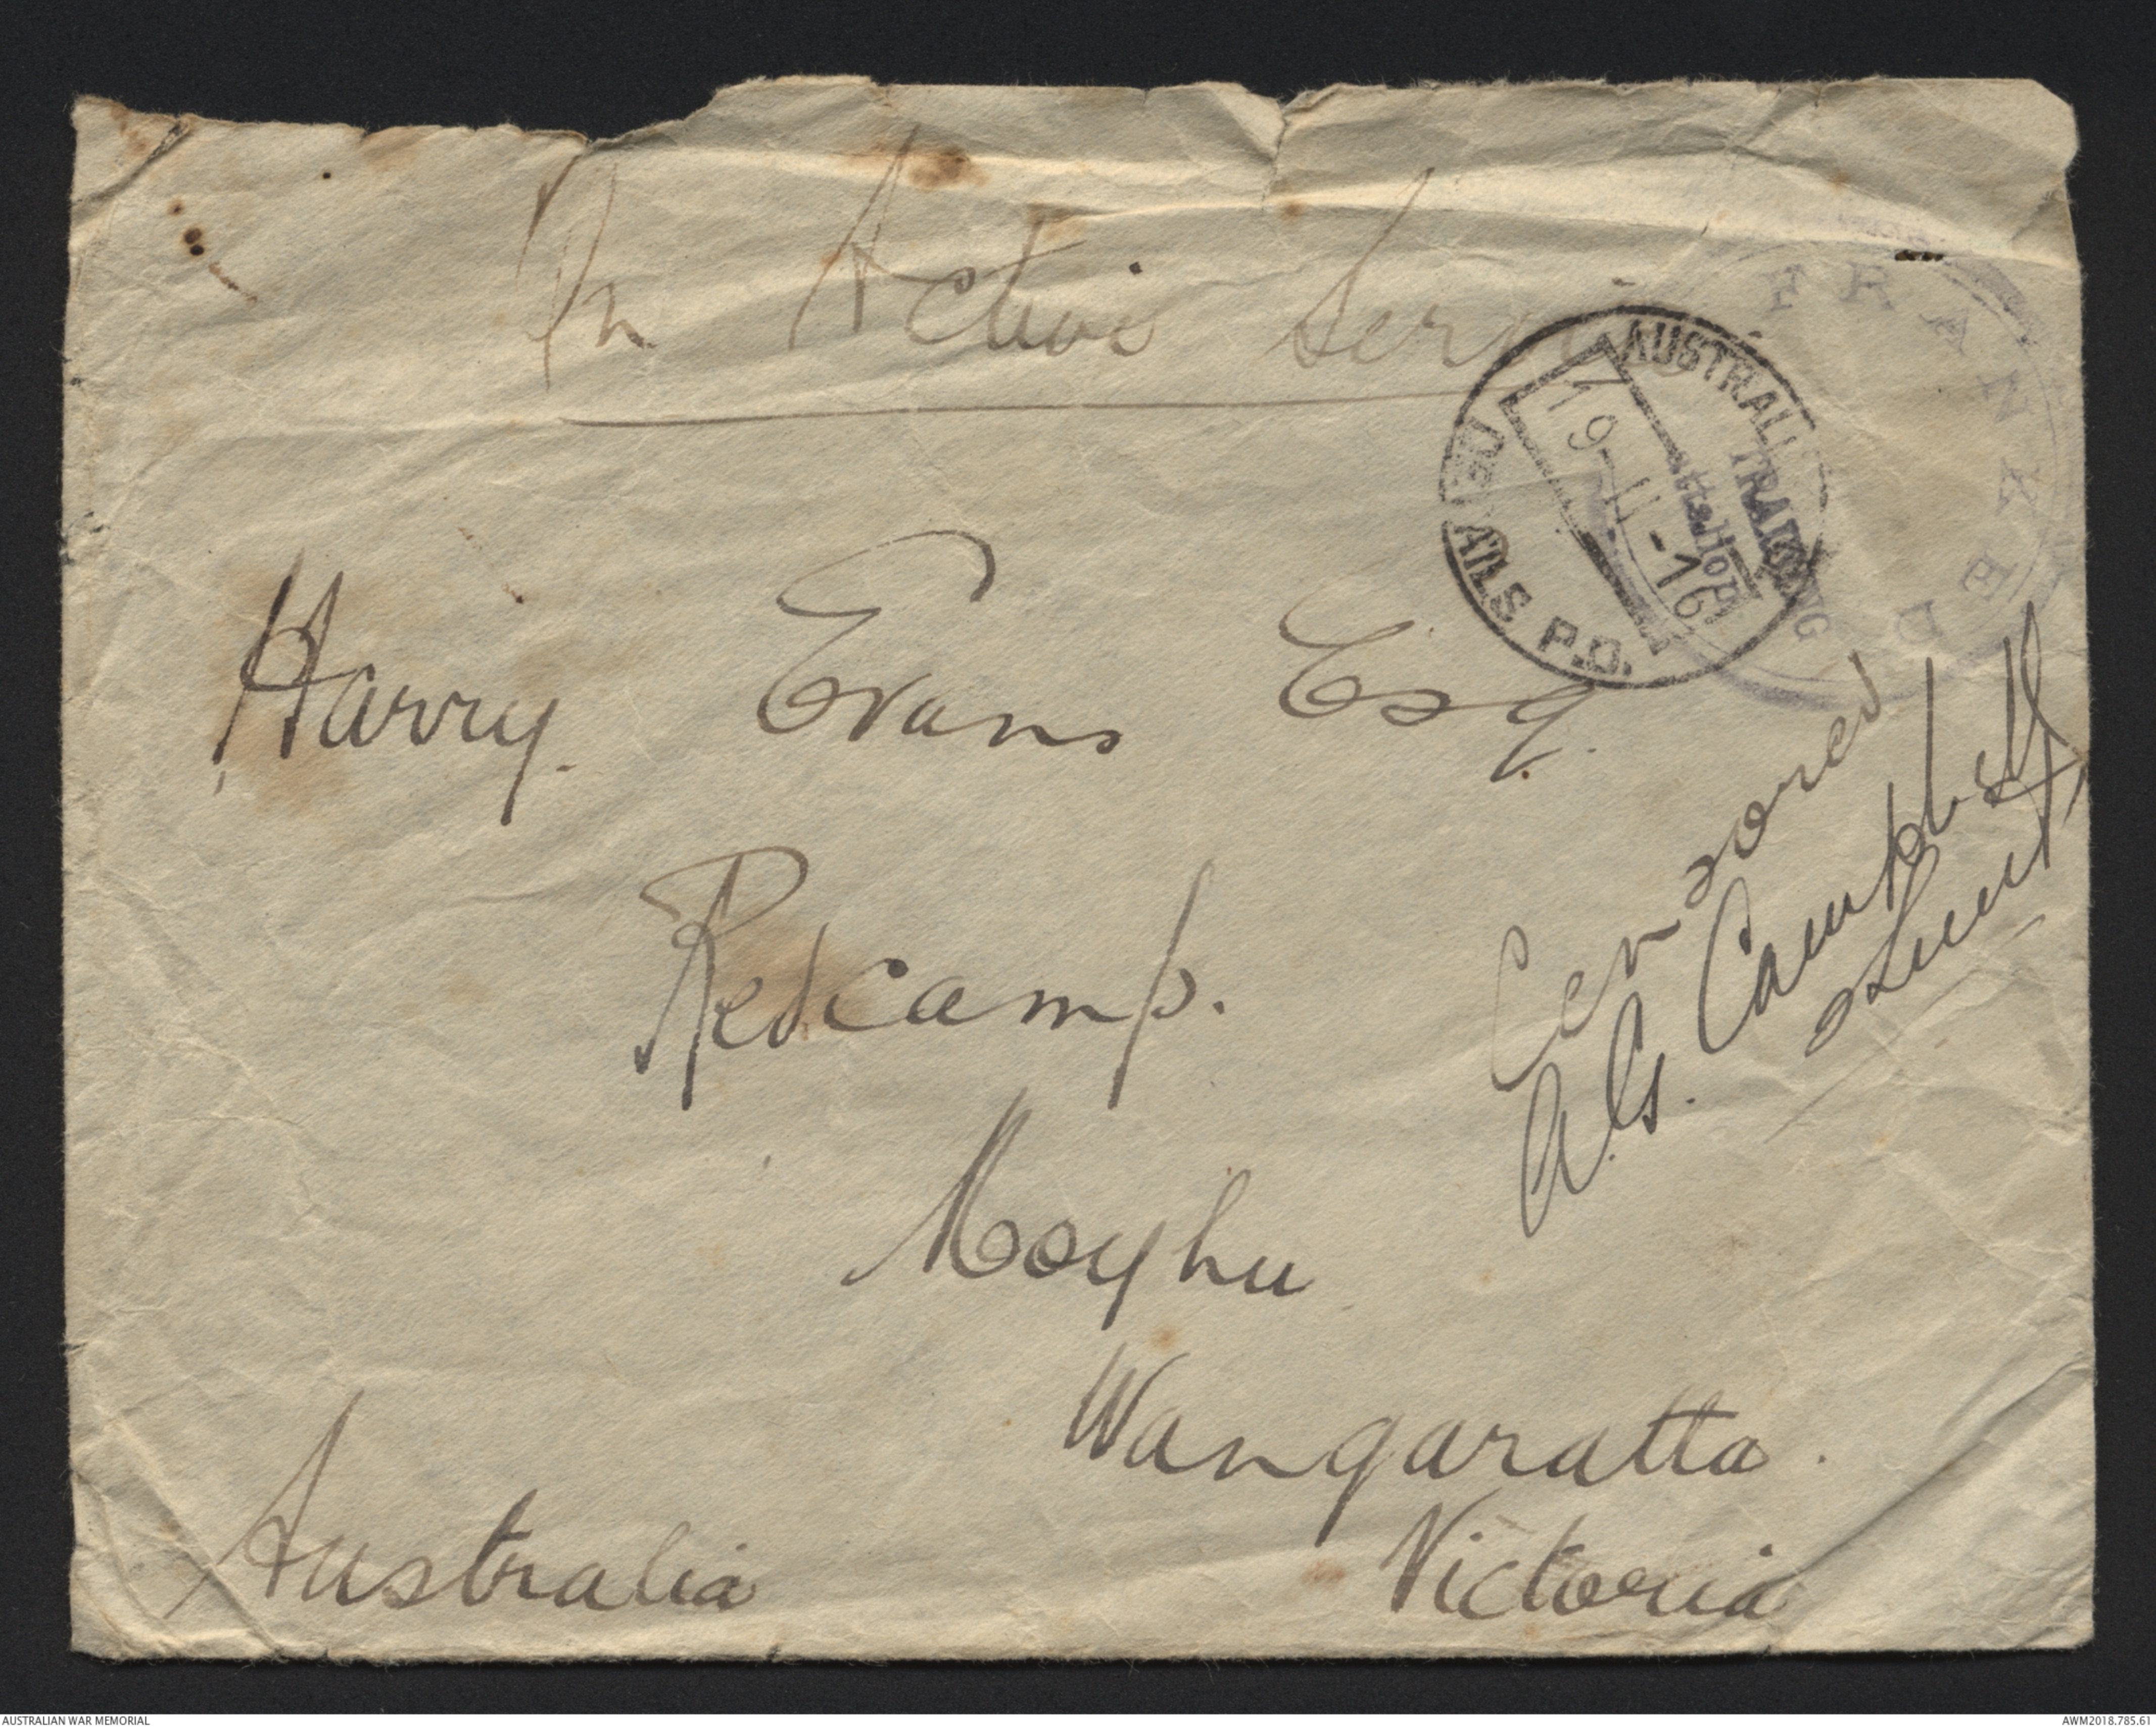 On Active Servi
FRANKED
AUSTRALI
TRAINING
19-11-16
AILS P.O.
Harry. Evans Esq.
Redcamp.
Moyhu
Wangaratta.
Victoria
Australia
Censored
A.G. Campbell
2Lieut
AUSTRALIAN WAR MEMORIAL
AWM2018.785.61